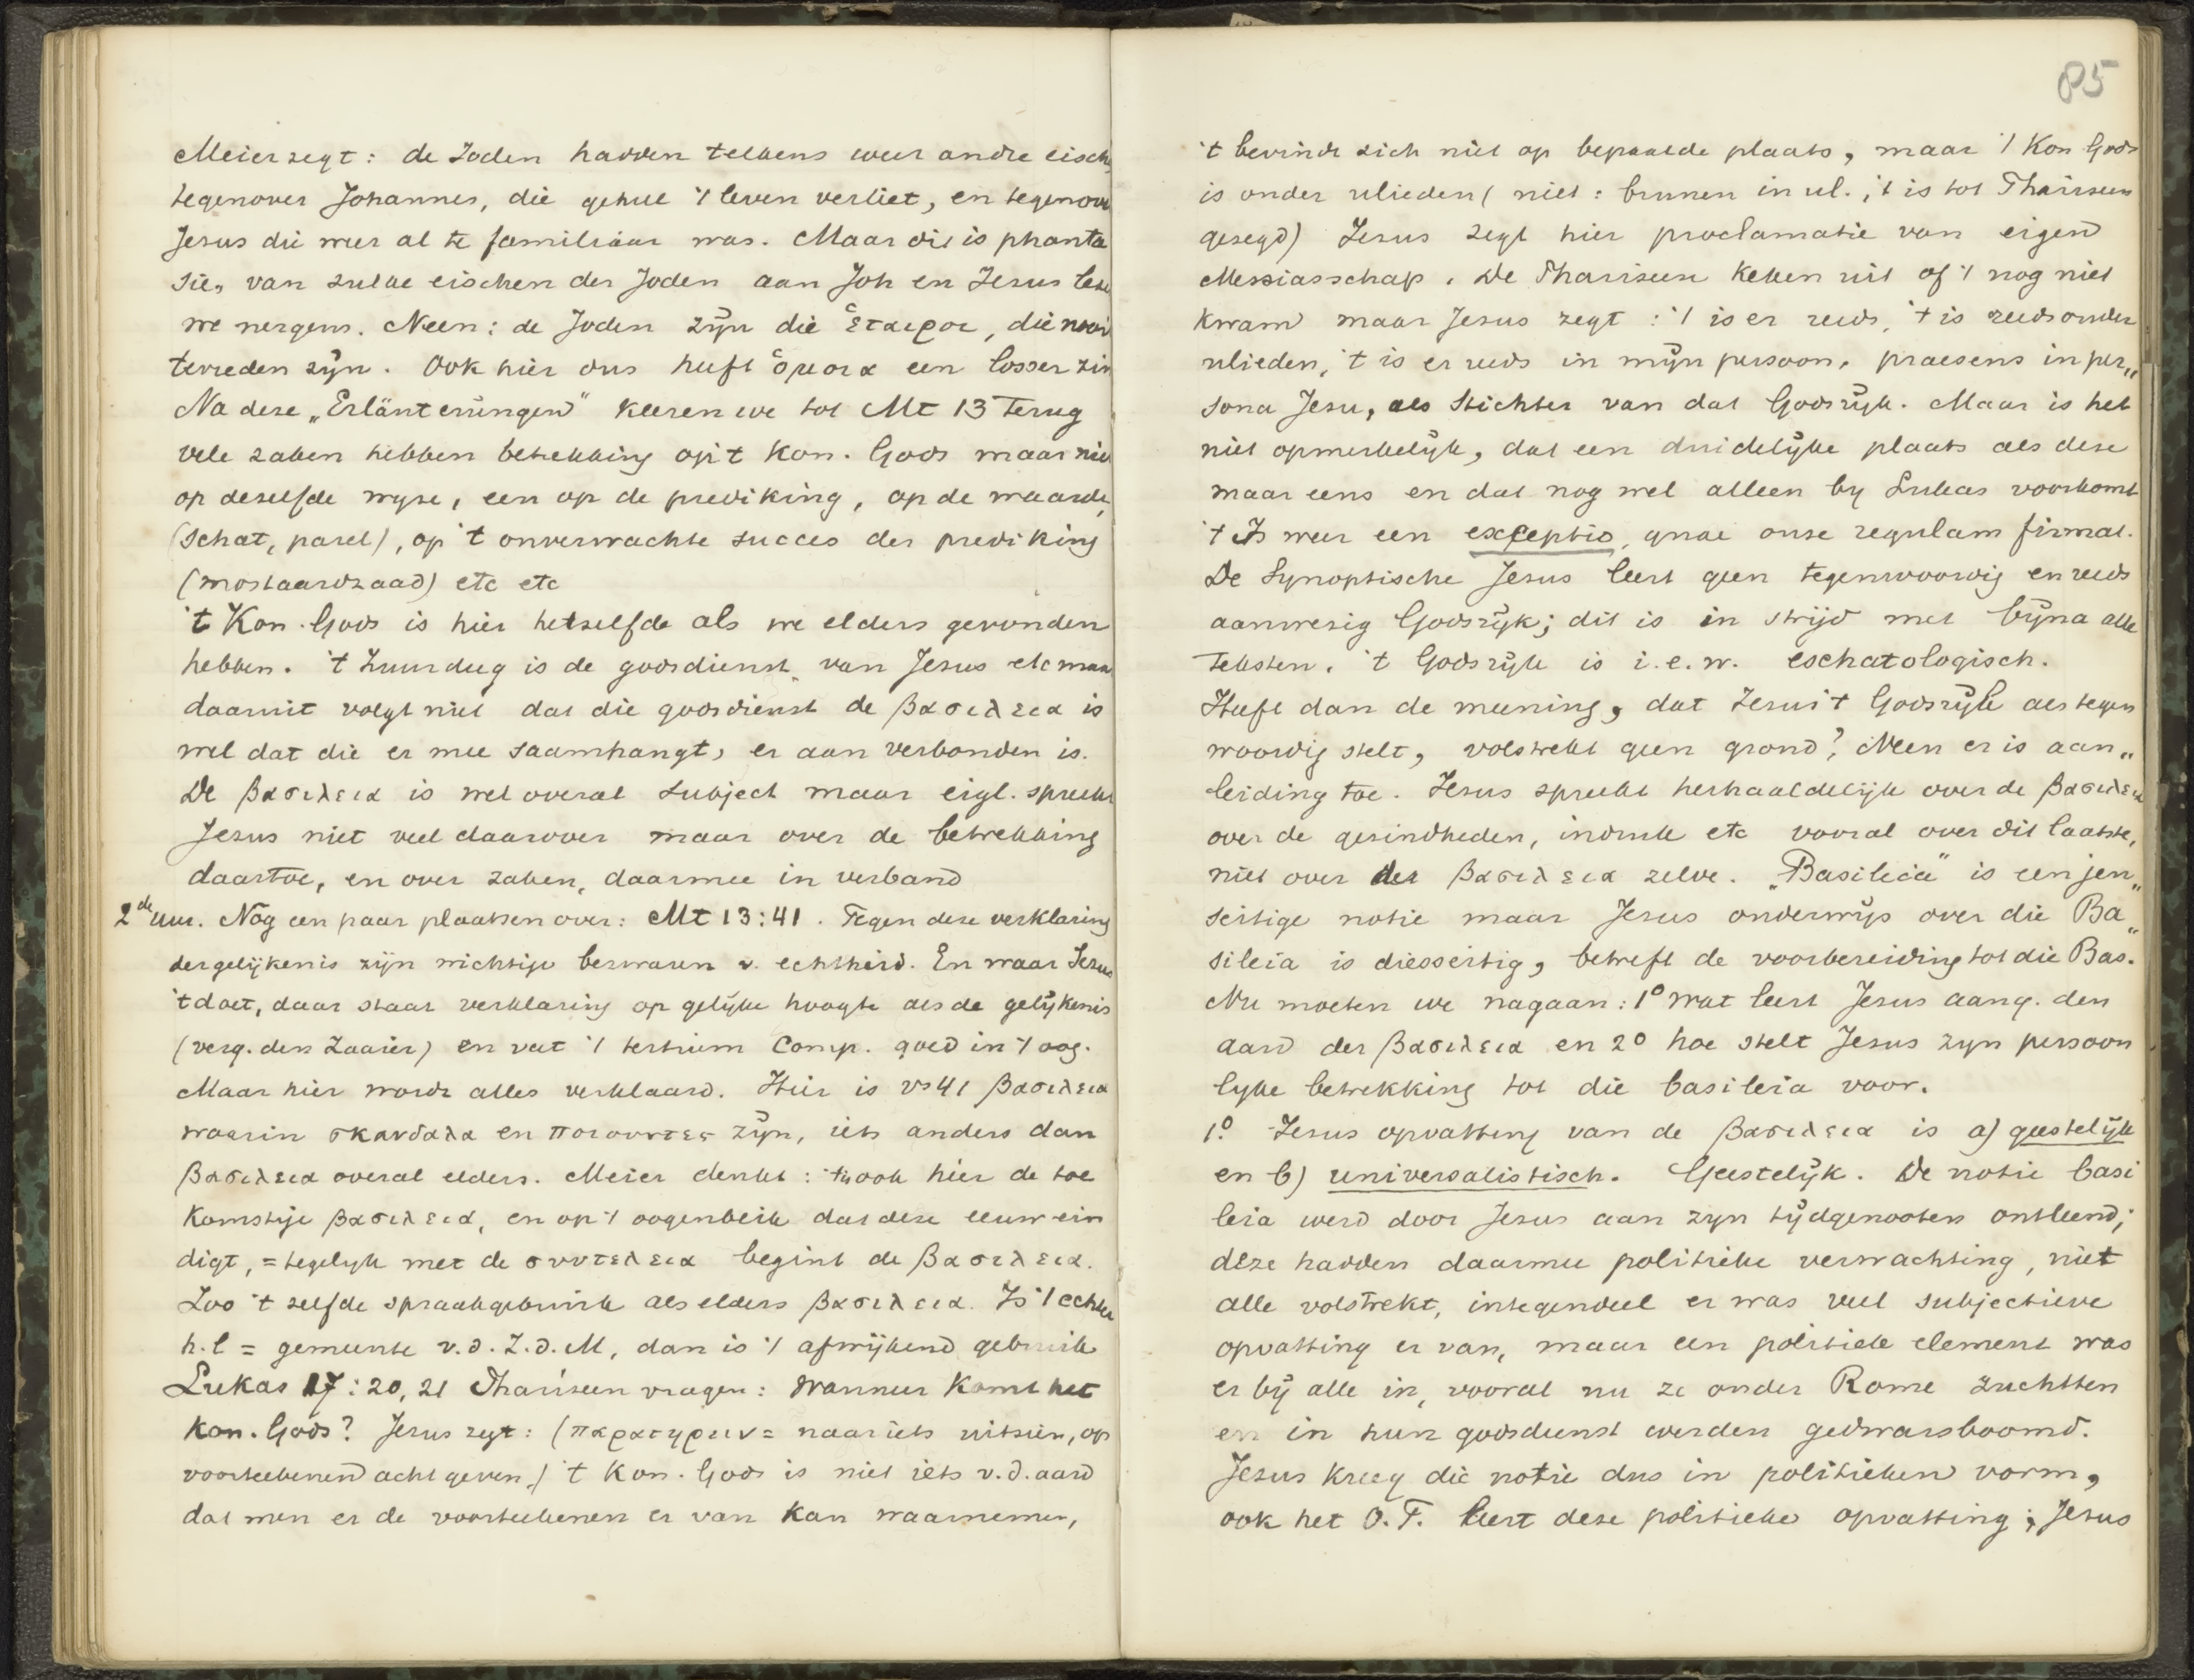 Meier zegt: de Joden hadden telkens weer andre eischen
tegenover Johannes, die geheel 't leven verliet, en tegenover
Jesus die weer al te familiaar was. Maar dit is phanta
sie, van zulke eischen der Joden aan Joh en Jesus lezen
we nergens. Neen: de Joden zijn die ἑταιροι, die nooit
tevreden zijn. Ook hier dus heeft ὁμοια een losser zin
Na deze „Erläuterüngen" keeren we tot Mt 13 terug
vele zaken hebben betrekking op 't Kon. Gods maar niet
op deselfde wyse, een op de prediking, op de waarde,
(Schat, parel), op 't onverwachte succes der prediking
(mostaardzaad) etc etc
't Kon. Gods is hier hetzelfde als we elders gevonden
hebben. 't Zuurdeeg is de godsdienst van Jesus etc maar
daaruit volgt niet dat die godsdienst de βασιλεια is
wel dat die er mee saamhangt, er aan verbonden is.
De βασιλεια is wel overal subject maar eigl. spreekt
Jesus niet veel daarover maar over de betrekking
daartoe, en over zaken, daarmee in verband
2de uur. Nog een paar plaatsen over: Mt 13:41. Tegen deze verklaring
der gelijkenis zijn wichtige bezwaren v. echtheid. En waar Jezus
't doet, daar staat verklaring op gelijke hoogte als de gelijkenis
(verg. den Zaaier) en vat 't tertium Comp. goed in 't oog.
Maar hier wordt alles verklaard. Hier is vs 41 βασιλεια
waarin σκανδαλα en ποιουντες zijn, iets anders dan
βασιλεια overal elders. Meier denkt: 't is ook hier de toe
komstige βασιλεια, en op 't oogenblik dat deze eeuw ein
digt, = tegelyk met de συντελεια begint de βασιλεια.
Zoo 't zelfde spraakgebruik als elders βασιλεια. Is 't echter
h.l = gemeente v.d. Z.d.M, dan is 't afwijkend gebruik
Lukas 17:20,21 Phariseen vragen: Wanneer komt het
Kon. Gods? Jezus zegt: (παρατηρειν = naar iets uitzien, op
voorteekenen acht geven) 't Kon. Gods is niet iets v.d. aard
dat men er de voorteekenen er van kan waarnemen,
85
't bevindt zich niet op bepaalde plaats, maar 't Kon Gods
is onder ulieden (niet: binnen in ul.; 't is tot Phariseen
gezegd) Jezus zegt hier proclamatie van eigen
Messiasschap. De Phariseen keken uit of 't nog niet
kwam maar Jezus zegt: 't is er reeds, 't is reeds onder
ulieden, 't is er reeds in mijn persoon, praesens in per„
sona Jesu, als Stichter van dat Godsrijk. Maar is het
niet opmerkelijk, dat een duidelijke plaats als deze
maar eens en dat nog wel alleen by Lukas voorkomt
't Is weer een exceptio, quae onze regulam firmat.
De Synoptische Jesus leert geen tegenwoordig en reeds
aanwezig Godsrijk; dit is in strijd met bijna alle
teksten. 't Godsrijk is i.e.w. eschatologisch.
Heeft dan de meening, dat Jezus 't Godsrijk als tegen
woordig stelt, volstrekt geen grond? Neen er is aan„
leiding toe. Jezus spreekt herhaaldelijk over de βασιλεια
over de gezindheden, indruk etc vooral over dit laatste,
niet over der βασιλεια zelve. „Basileia" is een jen„
seitige notie maar Jezus onderwijs over die Ba„
sileia is diesseitig, betreft de voorbereiding tot die Bas.
Nu moeten we nagaan: 1° wat leert Jezus aang. den
aard der βασιλεια en 2° hoe stelt Jezus zyn persoon
lyke betrekking tot die basileia voor.
1°. Jezus opvatting van de βασιλεια is a) geestelijk
en b) universalistisch. Geestelijk. De notie basi
leia werd door Jezus aan zyn tijdgenooten ontleend;
deze hadden daarmee politieke verwachting, niet
alle volstrekt, integendeel er was veel subjectieve
opvatting er van, maar een politiek element was
er bij alle in, vooral nu ze onder Rome zuchtten
en in hun godsdienst werden gedwarsboomd.
Jezus kreeg die notie dus in politieken vorm,
ook het O.T. leert deze politieke opvatting; Jezus